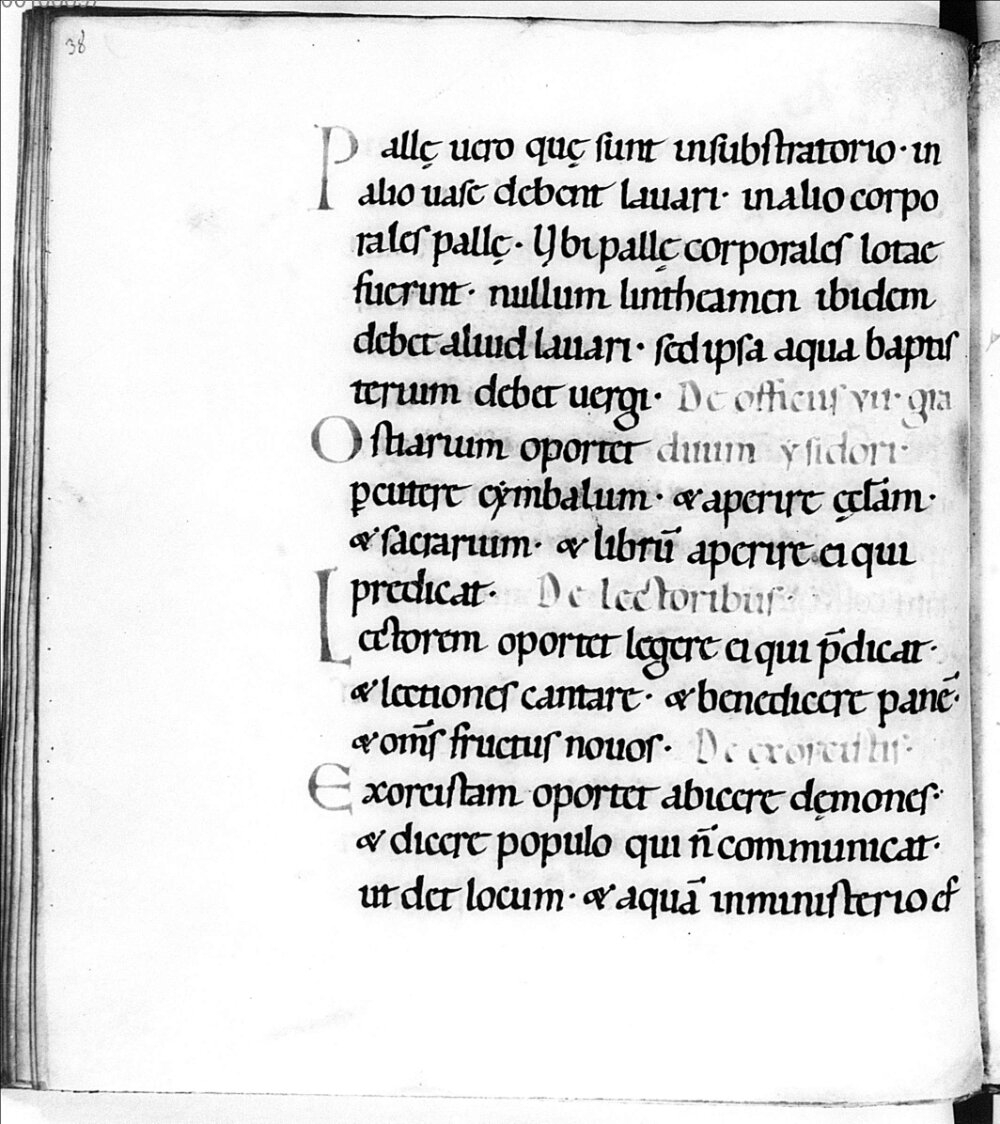 38
Pallę uero quę sunt insubstratorio· in
alio uase debent lauari· inalio corpo
rales pallę· Vbi pallę corporales lotae
fuerint· nullum lintheamen ibidem
debet aliud lauari· sed ipsa aqua baptis
terium debet uergi· De officiis vii· gra
Ostiarium oportet duum ysidori·
ꝑcutere cymbalum· & aperire ęcl̄am·
& sacrarium· & librū aperire ei qui
predicat· De lectoribus·
Lectorem oportet legere ei qui p̄dicat·
& lectiones cantare· & benedicere panē·
& om̄s fructus nouos· De exorcistis·
Exorcistam oportet abicere dęmones·
& dicere populo qui n̄ communicat·
ut det locum· & aquā inministerio ef